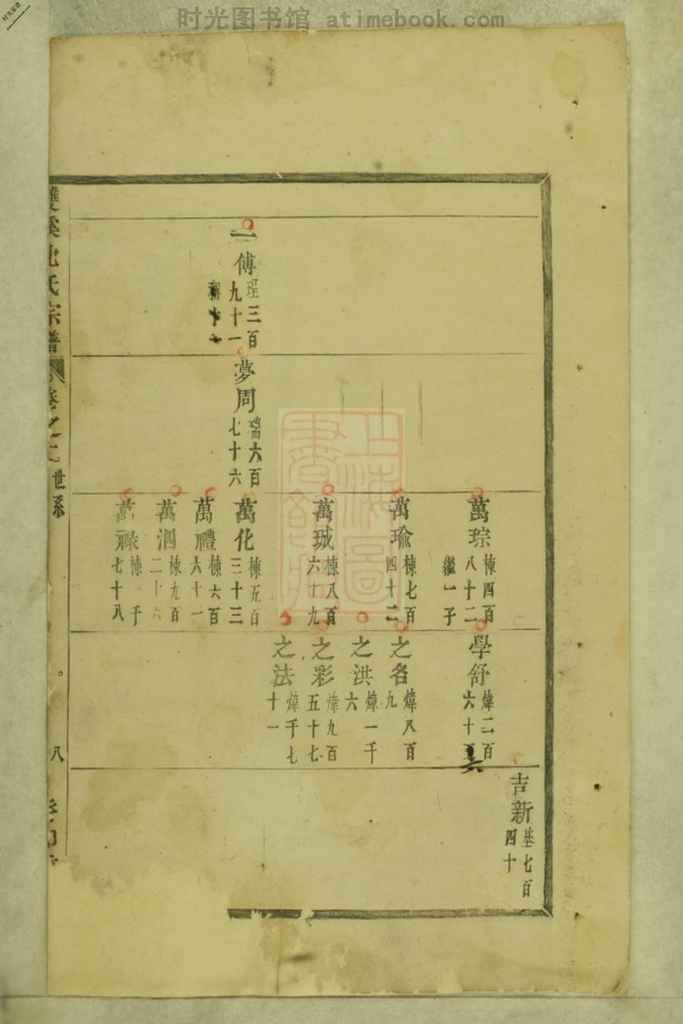 时光图书馆 atimebook.com
一傅
珵三百
九十一
夢周
璿六百
七十六
萬琮
棟四百
八十二
繼一子
萬瑜
棟七百
四十二
萬珹
棟八百
六十九
萬化
棟五百
三十三
萬禮
棟六百
六十一
萬泗
棟九百
二十六
萬祿
棟一千
七十八
學舒
煒二百
六十
之名
煒八百
九
之洪
煒一千
六
之彩
煒九百
五十七
之法
煒千七
十一
吉新
基七百
四十
氏宗譜
世系
八
上海圖書館藏